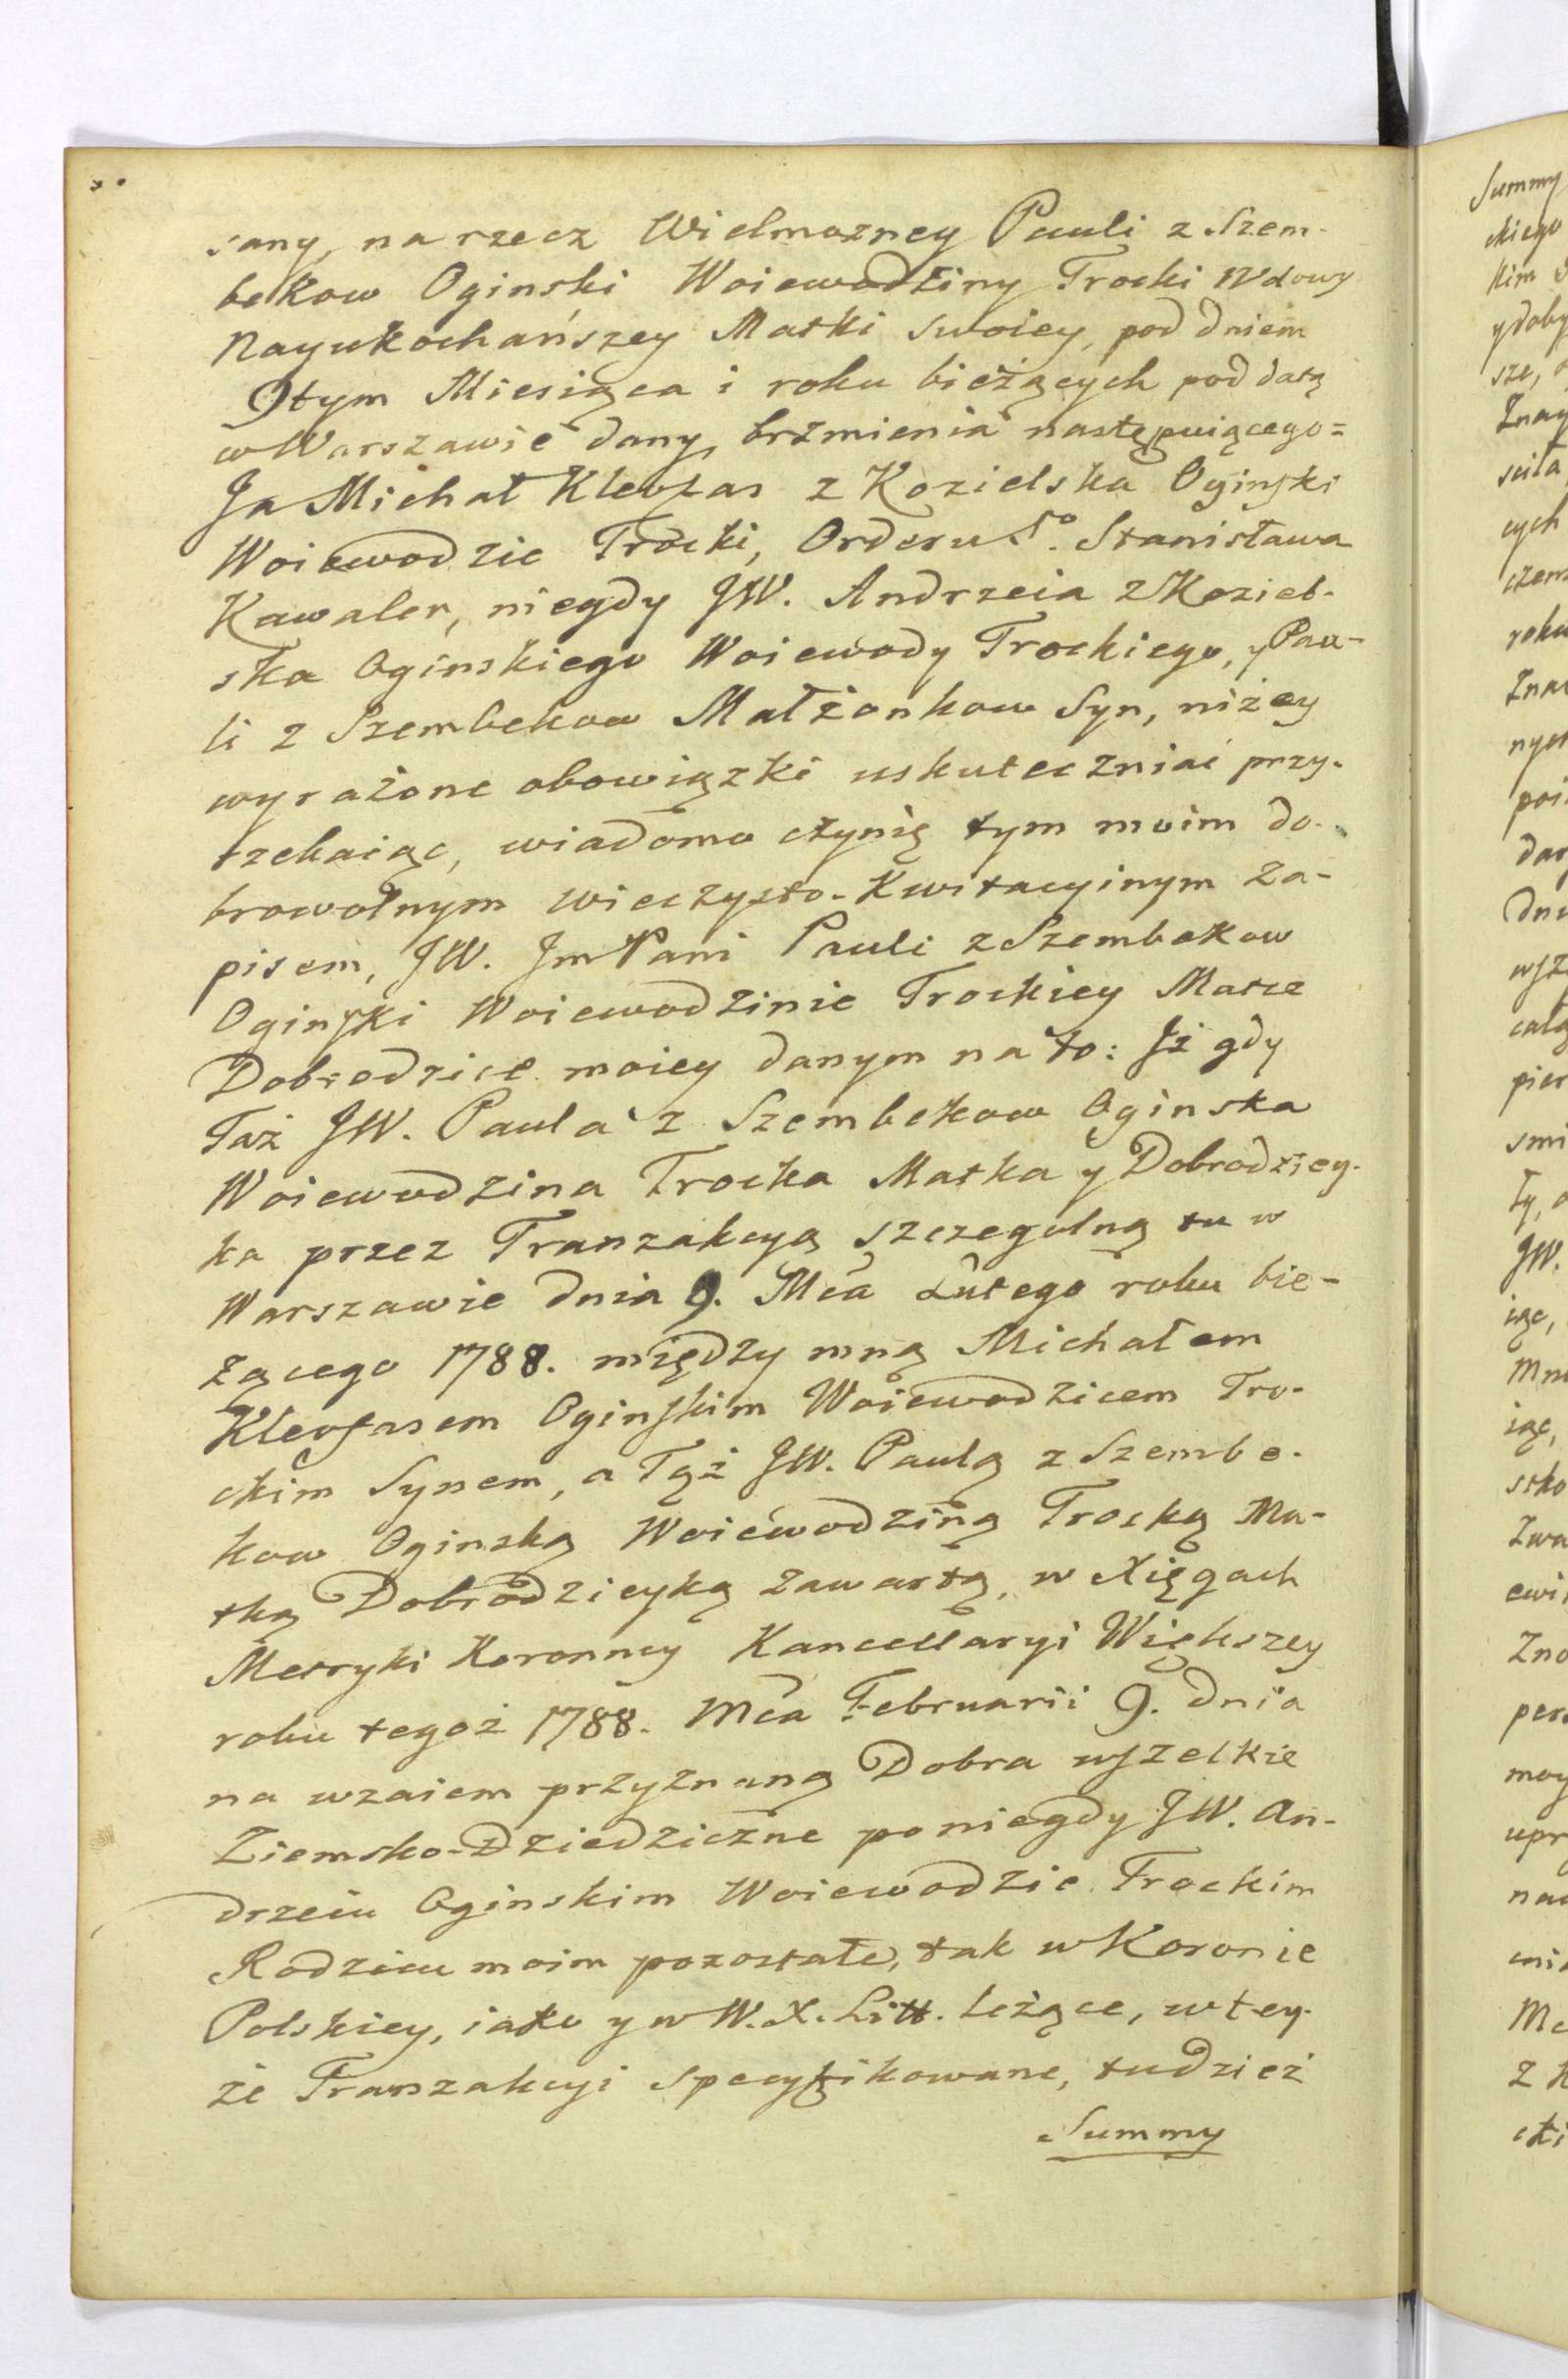 sany, na rzecz Wielmozney Pauli z Szem-
bekow Oginski Woiewodziny Trocki Wdowy
Nayukochańszey Matki swoiey, pod dniem
9tym Miesiąca i roku bieżących pod datą
w Warszawie dany, brzmienia następuiącego =
Ja Michał Kleofas z Kozielska Oginski
Woiewodzic Trocki, Orderu So. Stanisława
Kawaler, niegdy JW. Andrzeia z Koziel-
ska Oginskiego Woiewody Trockiego, y Pau-
li z Szembekow Małżonkow Syn, niżey
wyrażone obowiązki uskuteczniać przy-
rzekaiąc, wiadomo czynię tym moim do-
browolnym wieczysto-Kwitacyinym Za-
pisem, JW. Jm Pani Pauli z Szembekow
Oginski Woiewodzinie Trockiey Matce
Dobrodzice moiey danym na to: Iż gdy
Taż JW. Paula z Szembekow Oginska
Woiewodzina Trocka Matka y Dobrodziey-
ka przez Tranzakcyą szczegulną tu w
Warszawie dnia 9. Mca Lutego roku bie-
żącego 1788. między mną Michałem
Kleofasem Oginskim Woiewodzicem Tro-
ckim Synem, a Tąż JW. Paulą z Szembe-
kow Oginską Woiewodziną Trocką Ma-
tką Dobrodzieyką zawartą, w Xięgach
Metryki Koronney Kancellaryi Większey
roku tegoż 1788. Mca Februarii 9. dnia
na wzaiem przyznaną Dobra wszelkie
Ziemsko-Dziedziczne po niegdy JW. An-
drzeiu Oginskim Woiewodzie Trockim
Rodzicu moim pozostałe, tak w Koronie
Polskiey, iako y w W. X. Litt. leżące, w tey-
że Tranzakcyi specyfikowane, tudzież
Summy